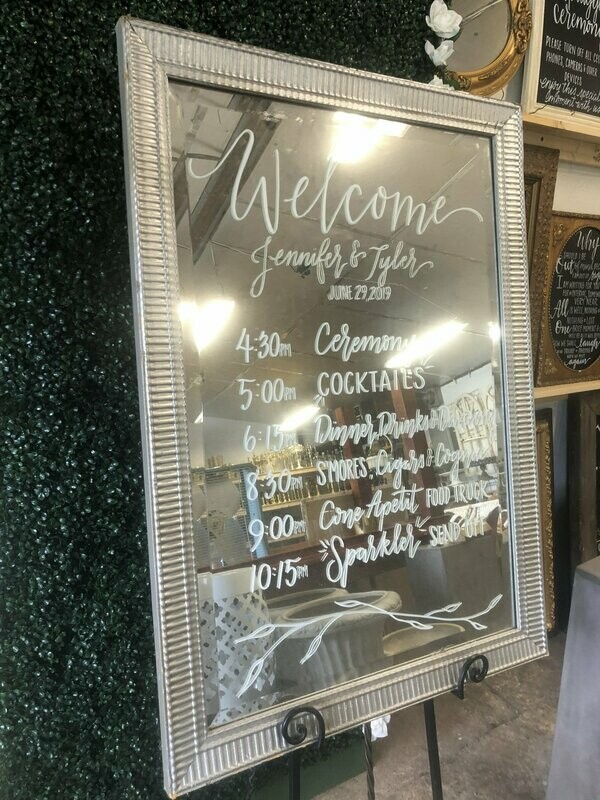 Welcome
Jennifer & Tyler
JUNE 29, 2019
4:30PM Ceremony
5:00PM COCKTAILS
6:15PM Dinner, Drinks &
8:30PM S'MORES, Cigars & Cognac
9:00PM Cone Apetit FOOD TRUCK
10:15PM "Sparkler" SEND OFF
Ceremony
PLEASE TURN OFF ALL CELL
PHONES, CAMERAS & OTHER
DEVICES
enjoy this special
moment with us
Why
Out
All
One
laugh
again